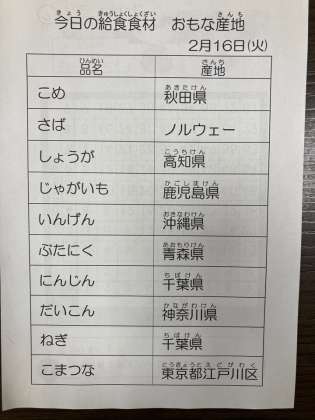 今日の給食食材　おもな産地
2月16日(火)
品名 産地
こめ 秋田県
さば ノルウェー
しょうが 高知県
じゃがいも 鹿児島県
いんげん 沖縄県
ぶたにく 青森県
にんじん 千葉県
だいこん 神奈川県
ねぎ 千葉県
こまつな 東京都江戸川区